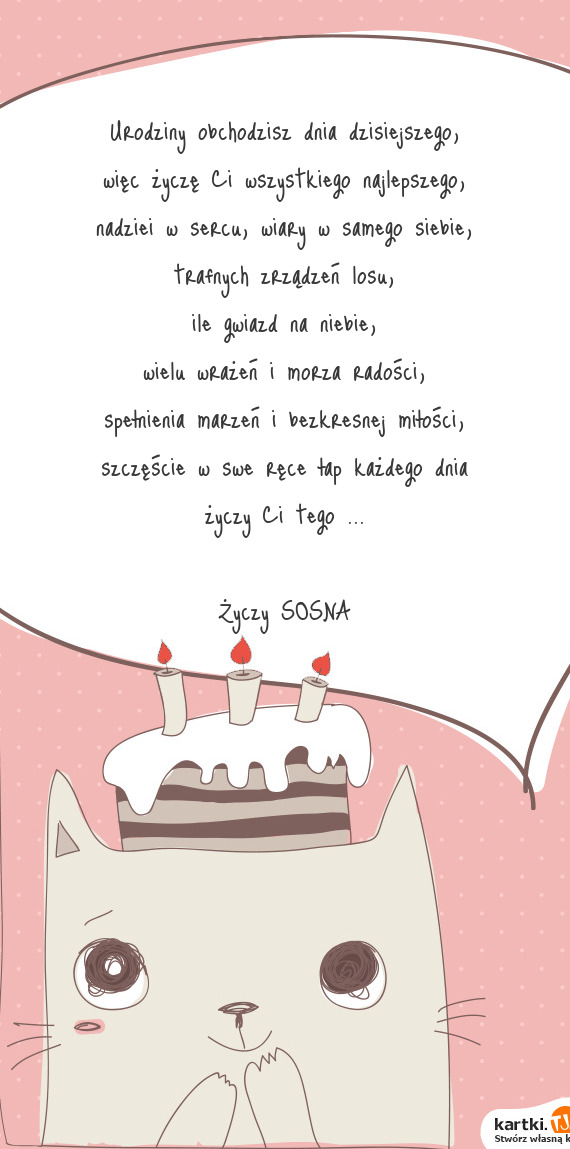 Urodziny obchodzisz dnia dzisiejszego,
więc życzę Ci wszystkiego najlepszego,
nadziei w sercu, wiary w samego siebie,
trafnych zrządzeń losu,
ile gwiazd na niebie,
wielu wrażeń i morza radości,
spełnienia marzeń i bezkresnej miłości,
szczęście w swe ręce łap każdego dnia
życzy Ci tego ...
Życzy SOSNA
kartki.TJ
Stwórz własną k